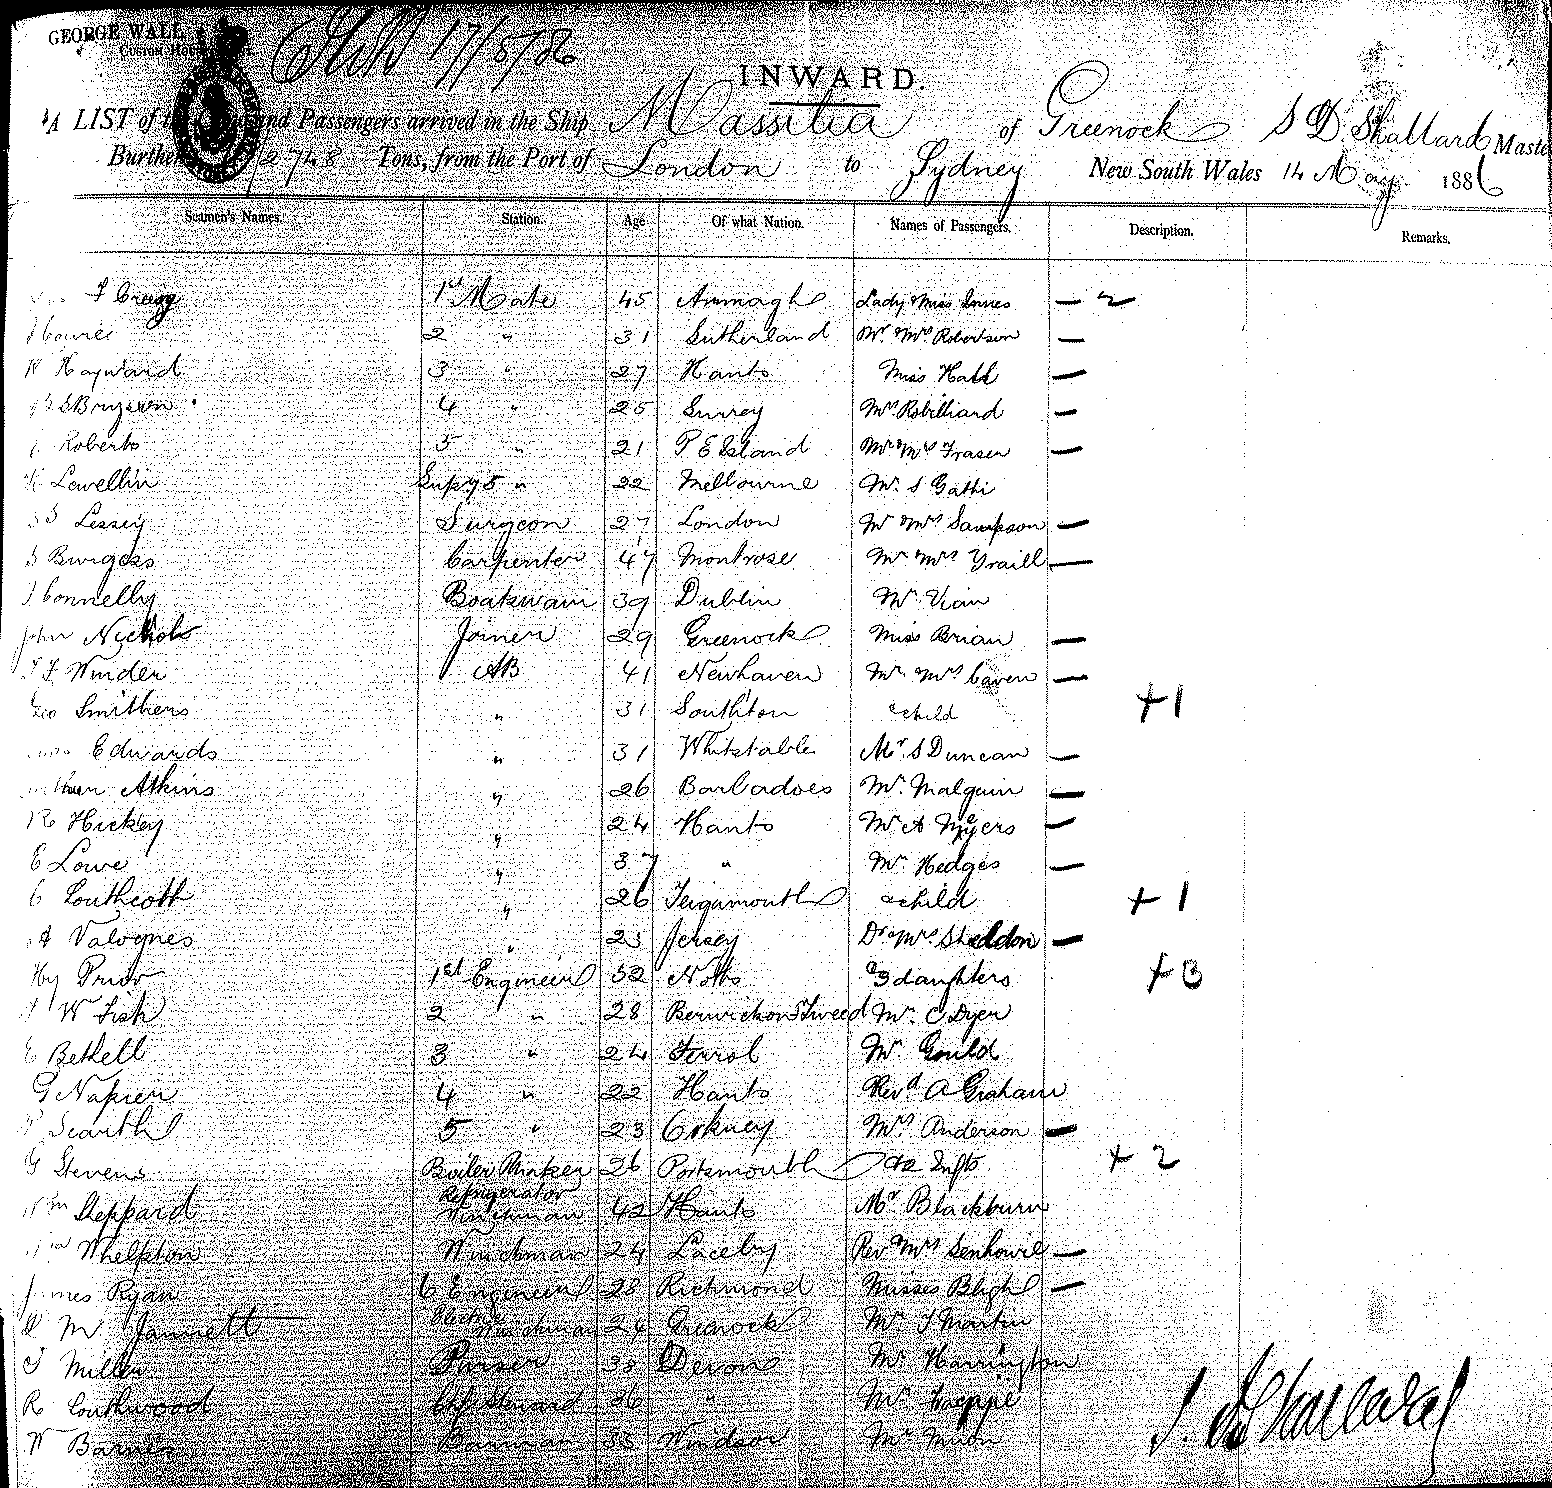 GEORGE WALL
Custom House
17/5/86
INWARD.
A LIST of the and Passengers arrived in the Ship Massilia of Greenock S D Shallard Maste
Burthen 2748 Tons, from the Port of London to Sydney New South Wales 14 May 1886
Seamen's Names. Station. Age Of what Nation. Names of Passengers. Description. Remarks.
1st Mate 45 Armagh Lady & Miss Innes —
2 " 31 Sutherland Mr. Mrs Robertson —
Hayward 3 " 27 Hants Miss Hall —
4 " 25 Surrey Mrs Robilliard —
Roberts 5 " 21 P E Island Mr & Mrs Fraser —
Lewellin Supy 5 " 22 Melbourne Mr. S Gatti
Lessey Surgeon 27 London Mr & Mrs Sampson —
Burgess Carpenter 47 Montrose Mr Mrs Traill —
J Connelly Boatswain 39 Dublin Mr.
John Nichols Joiner 29 Greenock Miss Brian —
Winder AB 41 Newhaven Mr. Mrs Caven —
Geo Smithers " 31 Southton & child +1
Edwards " 31 Whitstable Mr S Duncan —
Atkins " 26 Barbadoes Mr. Malguin —
Hickey " 24 Hants Mr A Myers —
E Lowe " 37 " Mr Hedges —
C Southcott " 26 Teignmouth & child + 1
A Valognes " 23 Jersey Dr & Mrs Sheddon —
Hy Prior 1st Engineer 52 Notts & 3 daughters +3
W Fish 2 " 28 Berwick on Tweed Mr. C Dyer
E Bethell 3 " 24 Ferrol Mr Gould
G Napier 4 " 22 Hants Revd A Graham
Scarth 5 " 23 Orkney Mrs Anderson —
G Stevens Boiler Maker 26 Portsmouth & 2 Infts + 2
Wm Sheppard Refrigerator Winchman 42 Hants Mr Blackburn
Whelpton Winchman 24 Laceby Rev & Mrs —
James Ryan Engineer 28 Richmond Misses Bligh —
Jannett Winchman 26 Greenock Mr J Martin
Miller Purser 33 Devon Mr Harrington
R Southwood Chf Steward 36 " Mr
W Barnes Barman 33 Windsor Mr
S. D. Shallard